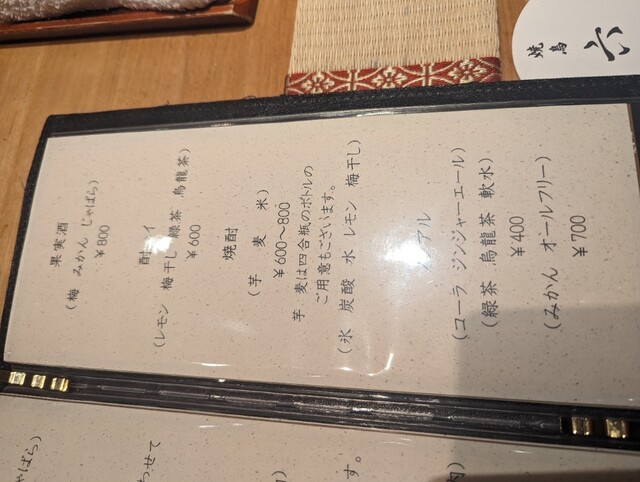 焼鳥 六
果実酒
(梅 みかん じゃばら)
¥800
酎ハイ
(レモン 梅干し 緑茶 烏龍茶)
¥600
焼酎
(芋 麦 米)
¥600〜800
芋 麦は四合瓶のボトルの
ご用意もございます。
(氷 炭酸 水 レモン 梅干し)
ノンアル
(コーラ ジンジャーエール)
(緑茶 烏龍茶 軟水)
¥400
(みかん オールフリー)
¥700
ゃばら)
わせて
す。